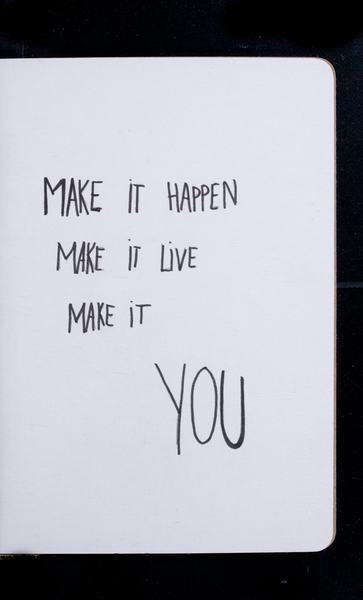 MAKE iT HAPPEN
MAKE iT LiVE
MAKE iT
YOU